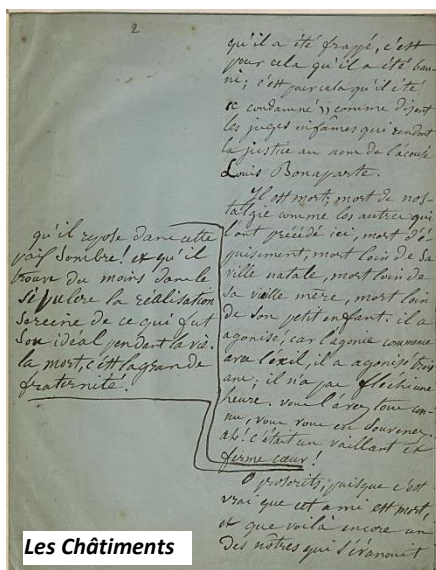 2
qu'il a été frappé, c'est
pour cela qu'il a été ban-
ni; c'est pour cela qu'il été
« condamné » comme disent
les juges infâmes qui rendent
la justice au nom de l'accusé
Louis Bonaparte.
Il est mort; mort de nos-
talgie comme les autres qui
l'ont précédé ici, mort d'é-
puisement, mort loin de sa
ville natale, mort loin de
sa vieille mère, mort loin
de son petit enfant. il a
agonisé, car l'agonie commence
avec l'exil, il a agonisé trois
ans; il n'a pas fléchi une
heure. vous l'avez tous con-
nu, vous vous en souvenez.
ah! c'était un vaillant et
ferme cœur!
qu'il repose dans cette
paix sombre! et qu'il
trouve du moins dans le
sépulcre la réalisation
sereine de ce qui fut
son idéal pendant la vie.
la mort, c'est la grande
fraternité.
O proscrits, puisque c'est
vrai que cet ami est mort,
et que voilà encore un
des nôtres qui s'évanouit
Les Châtiments